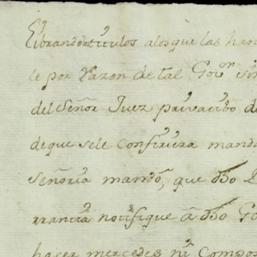 librando titulos a los que las han
le por razon de tal Gov.or
del Señor Juez privatibo de
de que se le confiriera mand
Señoria mandó, que dho
notifique â dho Go
hacer mercedes ni Compos